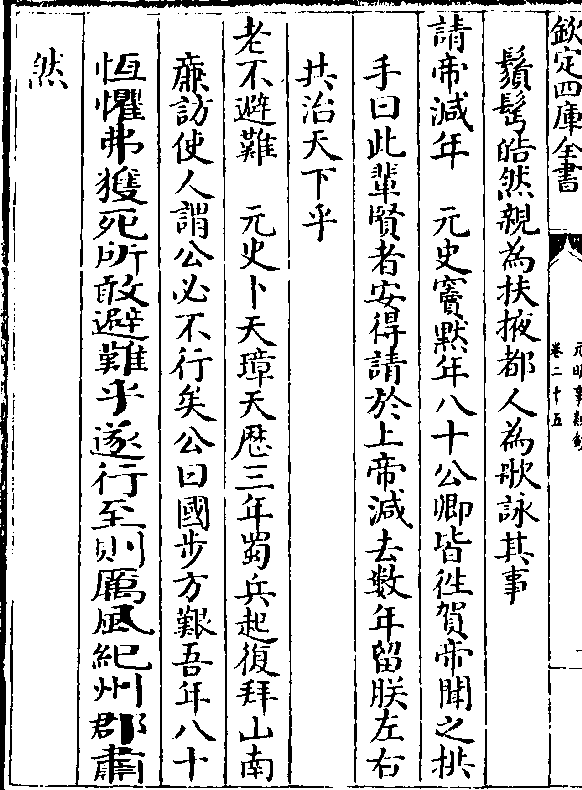 欽定四庫全書
元明事類鈔
卷二十五
鬚髯皓然親為扶掖都人為歌詠其事
請帝減年　元史竇黙年八十公卿皆徃賀帝聞之拱
手曰此輩賢者安得請於上帝減去數年留朕左右
共治天下乎
老不避難　元史卜天璋天厯三年蜀兵起復拜山南
廉訪使人謂公必不行矣公曰國步方艱吾年八十
恆懼弗獲死所敢避難乎遂行至則厲風紀州郡肅
然